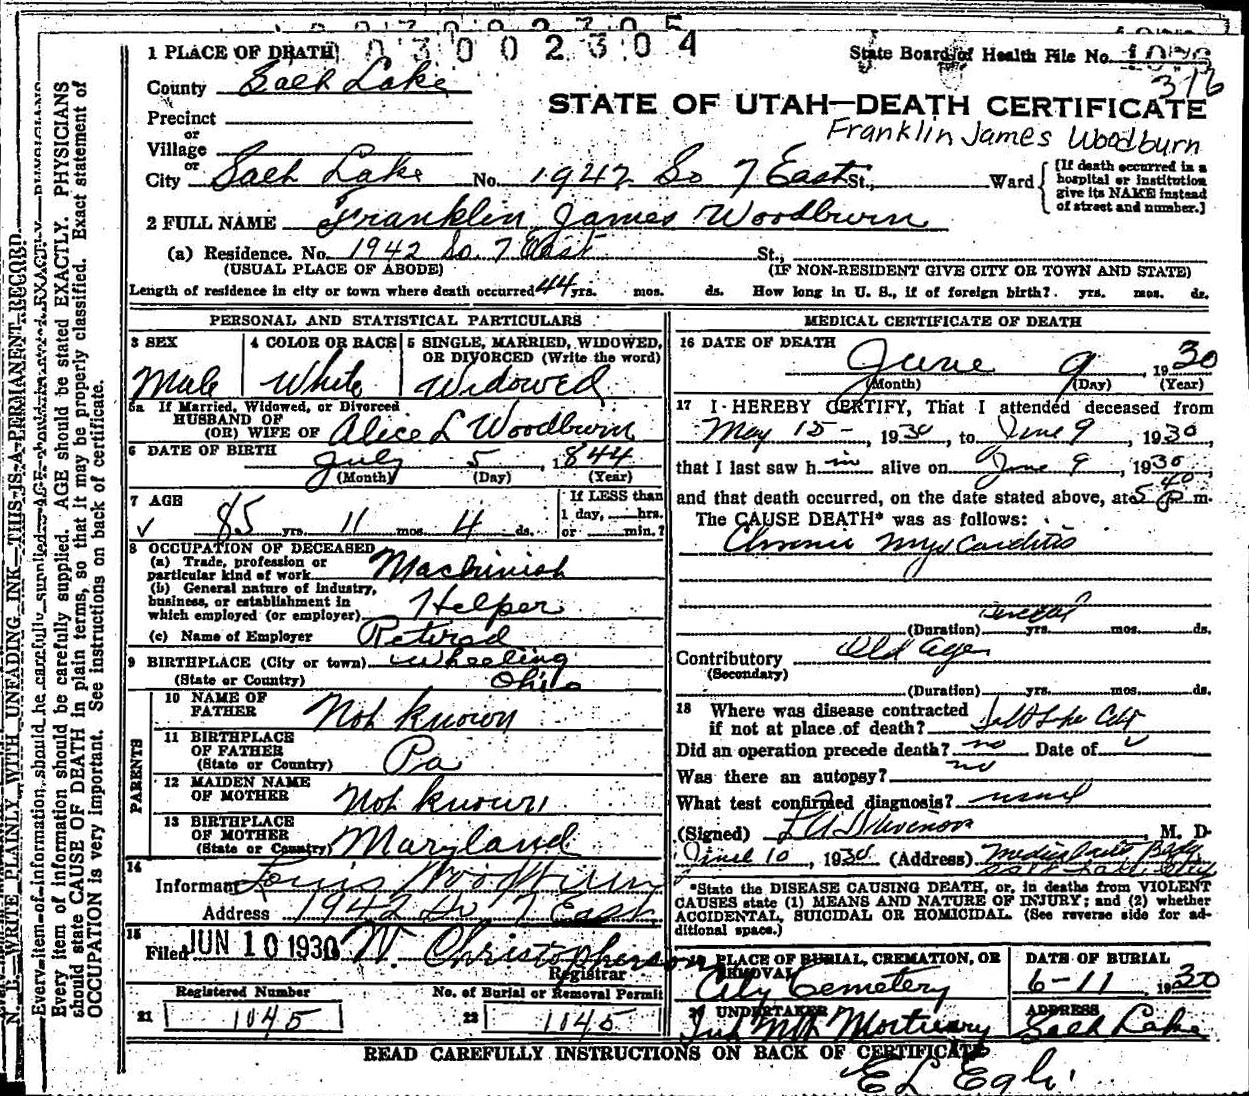 03002304
1 PLACE OF DEATH
State Board of Health File No.
316
County Salt Lake
STATE OF UTAH—DEATH CERTIFICATE
Franklin James Woodburn
Precinct
or
Village
or
City Salt Lake No. 1942 So 7 East St., Ward
[If death occurred in a hospital or institution give its NAME instead of street and number.]
2 FULL NAME Franklin James Woodburn
(a) Residence. No. 1942 So. 7 East St.,
(USUAL PLACE OF ABODE) (IF NON-RESIDENT GIVE CITY OR TOWN AND STATE)
Length of residence in city or town where death occurred 44 yrs. mos. ds. How long in U. S., if of foreign birth? yrs. mos. ds.
PERSONAL AND STATISTICAL PARTICULARS
3 SEX
Male
4 COLOR OR RACE
White
5 SINGLE, MARRIED, WIDOWED, OR DIVORCED (Write the word)
Widowed
5a If Married, Widowed, or Divorced
HUSBAND OF
(OR) WIFE OF Alice L Woodburn
6 DATE OF BIRTH July 5, 1844
(Month) (Day) (Year)
7 AGE
85 yrs. 11 mos. 4 ds.
If LESS than
1 day, hrs.
or min.?
8 OCCUPATION OF DECEASED
(a) Trade, profession or
particular kind of work Machinist
(b) General nature of industry,
business, or establishment in
which employed (or employer) Helper
(c) Name of Employer Retired
9 BIRTHPLACE (City or town) Wheeling
(State or Country) Ohio
PARENTS
10 NAME OF
FATHER Not known
11 BIRTHPLACE
OF FATHER
(State or Country) Pa
12 MAIDEN NAME
OF MOTHER Not known
13 BIRTHPLACE
OF MOTHER
(State or Country) Maryland
14
Informant Louis Woodburn
Address 1942 So 7 East
15
Filed JUN 10 1930 W. Christopherson
Registrar
Registered Number
21 1045
No. of Burial or Removal Permit
22 1045
MEDICAL CERTIFICATE OF DEATH
16 DATE OF DEATH
June 9, 1930
(Month) (Day) (Year)
17 I HEREBY CERTIFY, That I attended deceased from
May 15-, 1930, to June 9, 1930,
that I last saw him alive on June 9, 1930
and that death occurred, on the date stated above, at 5 40 P m.
The CAUSE DEATH* was as follows:
Chronic Myocarditis
several
(Duration) yrs. mos. ds.
Contributory Old Age
(Secondary)
(Duration) yrs. mos. ds.
18 Where was disease contracted
if not at place of death? Salt Lake City
Did an operation precede death? no Date of
Was there an autopsy? no
What test confirmed diagnosis? usual
(Signed) L A Stevenson, M. D.
June 10, 1930 (Address) Medical Arts Bldg
Salt Lake City
*State the DISEASE CAUSING DEATH, or, in deaths from VIOLENT
CAUSES state (1) MEANS AND NATURE OF INJURY; and (2) whether
ACCIDENTAL, SUICIDAL OR HOMICIDAL. (See reverse side for ad-
ditional space.)
19 PLACE OF BURIAL, CREMATION, OR
REMOVAL
City Cemetery
DATE OF BURIAL
6-11 1930
20 UNDERTAKER
Mortuary
ADDRESS
Salt Lake
READ CAREFULLY INSTRUCTIONS ON BACK OF CERTIFICATE
E L Egli
N. B.—WRITE PLAINLY WITH UNFADING INK—THIS IS A PERMANENT RECORD
Every item of information should be carefully supplied. AGE should be stated EXACTLY. PHYSICIANS
should state CAUSE OF DEATH in plain terms, so that it may be properly classified. Exact statement of
OCCUPATION is very important. See instructions on back of certificate.